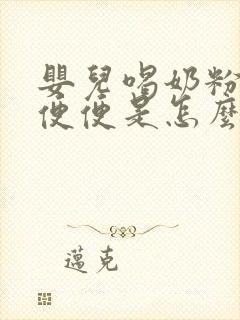 嬰兒喝奶粉
便便是怎麼
邁克